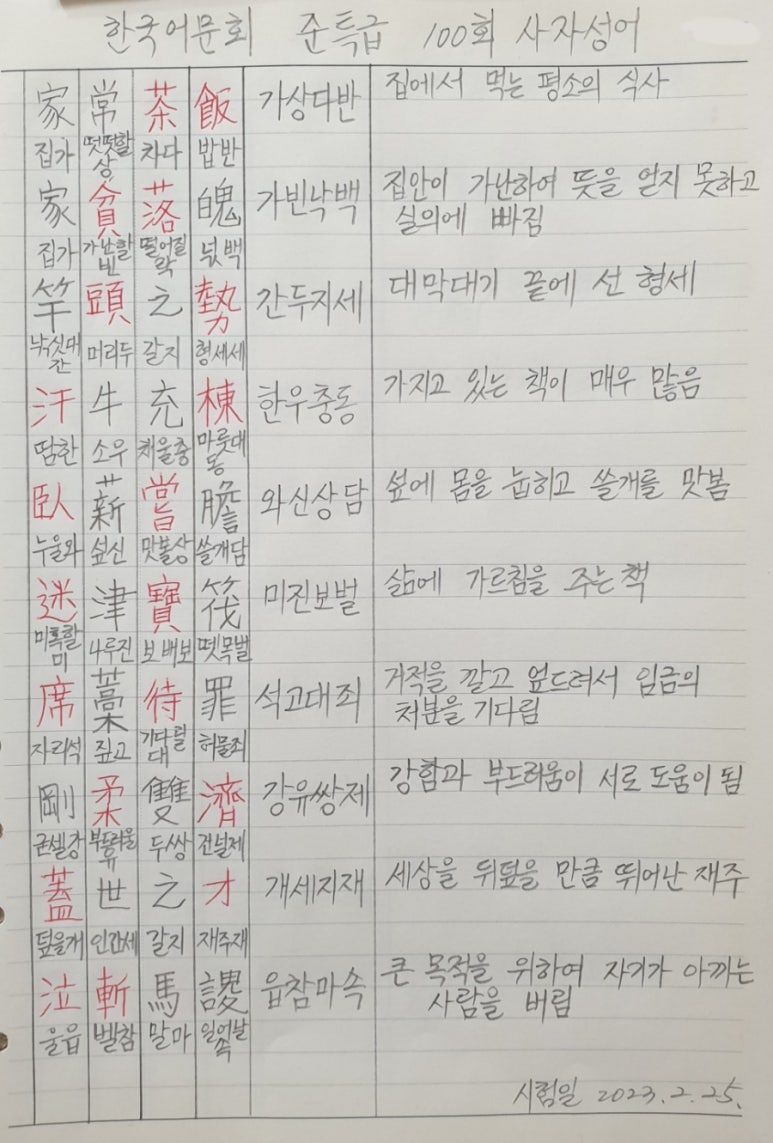 한국어문회 준특급 100회 사자성어
家 常 茶 飯 가상다반 집에서 먹는 평소의 식사
집가 떳떳할상 차다 밥반
家 貧 落 魄 가빈낙백 집안이 가난하여 뜻을 얻지 못하고
실의에 빠짐
집가 가난할빈 떨어질락 넋백
竿 頭 之 勢 간두지세 대막대기 끝에 선 형세
낚싯대간 머리두 갈지 형세세
汗 牛 充 棟 한우충동 가지고 있는 책이 매우 많음
땀한 소우 채울충 마룻대동
臥 薪 嘗 膽 와신상담 섶에 몸을 눕히고 쓸개를 맛봄
누울와 섶신 맛볼상 쓸개담
迷 津 寶 筏 미진보벌 삶에 가르침을 주는 책
미혹할미 나루진 보배보 뗏목벌
席 藁 待 罪 석고대죄 거적을 깔고 엎드려서 임금의
처분을 기다림
자리석 짚고 기다릴대 허물죄
剛 柔 雙 濟 강유쌍제 강함과 부드러움이 서로 도움이 됨
굳셀강 부드러울유 두쌍 건널제
蓋 世 之 才 개세지재 세상을 뒤덮을 만큼 뛰어난 재주
덮을개 인간세 갈지 재주재
泣 斬 馬 謖 읍참마속 큰 목적을 위하여 자기가 아끼는
사람을 버림
울읍 벨참 말마 일어날속
시험일 2023.2.25.